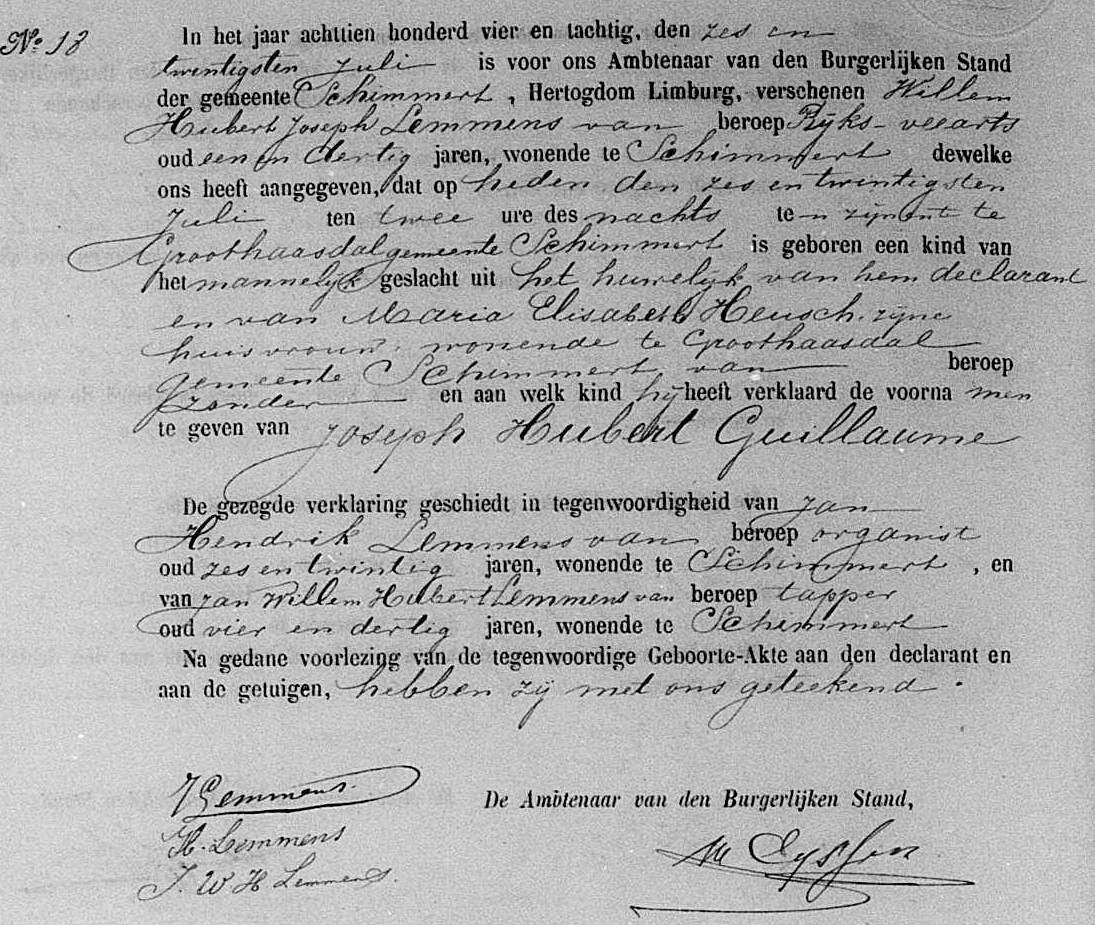 No. 18
In het jaar achttien honderd vier en tachtig, den zes en
twintigsten Juli is voor ons Ambtenaar van den Burgerlijken Stand
der gemeente Schimmert, Hertogdom Limburg, verschenen Willem
Hubert Joseph Lemmens van beroep Rijks-veearts
oud een en dertig jaren, wonende te Schimmert dewelke
ons heeft aangegeven, dat op heden den zes en twintigsten
Juli ten twee ure des nachts te-n zijnent te
Groothaasdal gemeente Schimmert is geboren een kind van
het mannelijk geslacht uit het huwelijk van hem declarant
en van Maria Elisabeth Heusch zijne
huisvrouw, wonende te Groothaasdal
gemeente Schimmert van beroep
zonder en aan welk kind hij heeft verklaard de voorna men
te geven van Joseph Hubert Guillaume
De gezegde verklaring geschiedt in tegenwoordigheid van Jan
Hendrik Lemmens van beroep organist
oud zes en twintig jaren, wonende te Schimmert, en
van Jan Willem Hubert Lemmens van beroep tapper
oud vier en dertig jaren, wonende te Schimmert
Na gedane voorlezing van de tegenwoordige Geboorte-Akte aan den declarant en
aan de getuigen, hebben zij met ons geteekend.
Lemmens.
De Ambtenaar van den Burgerlijken Stand,
H. Lemmens
J. W H Lemmens.